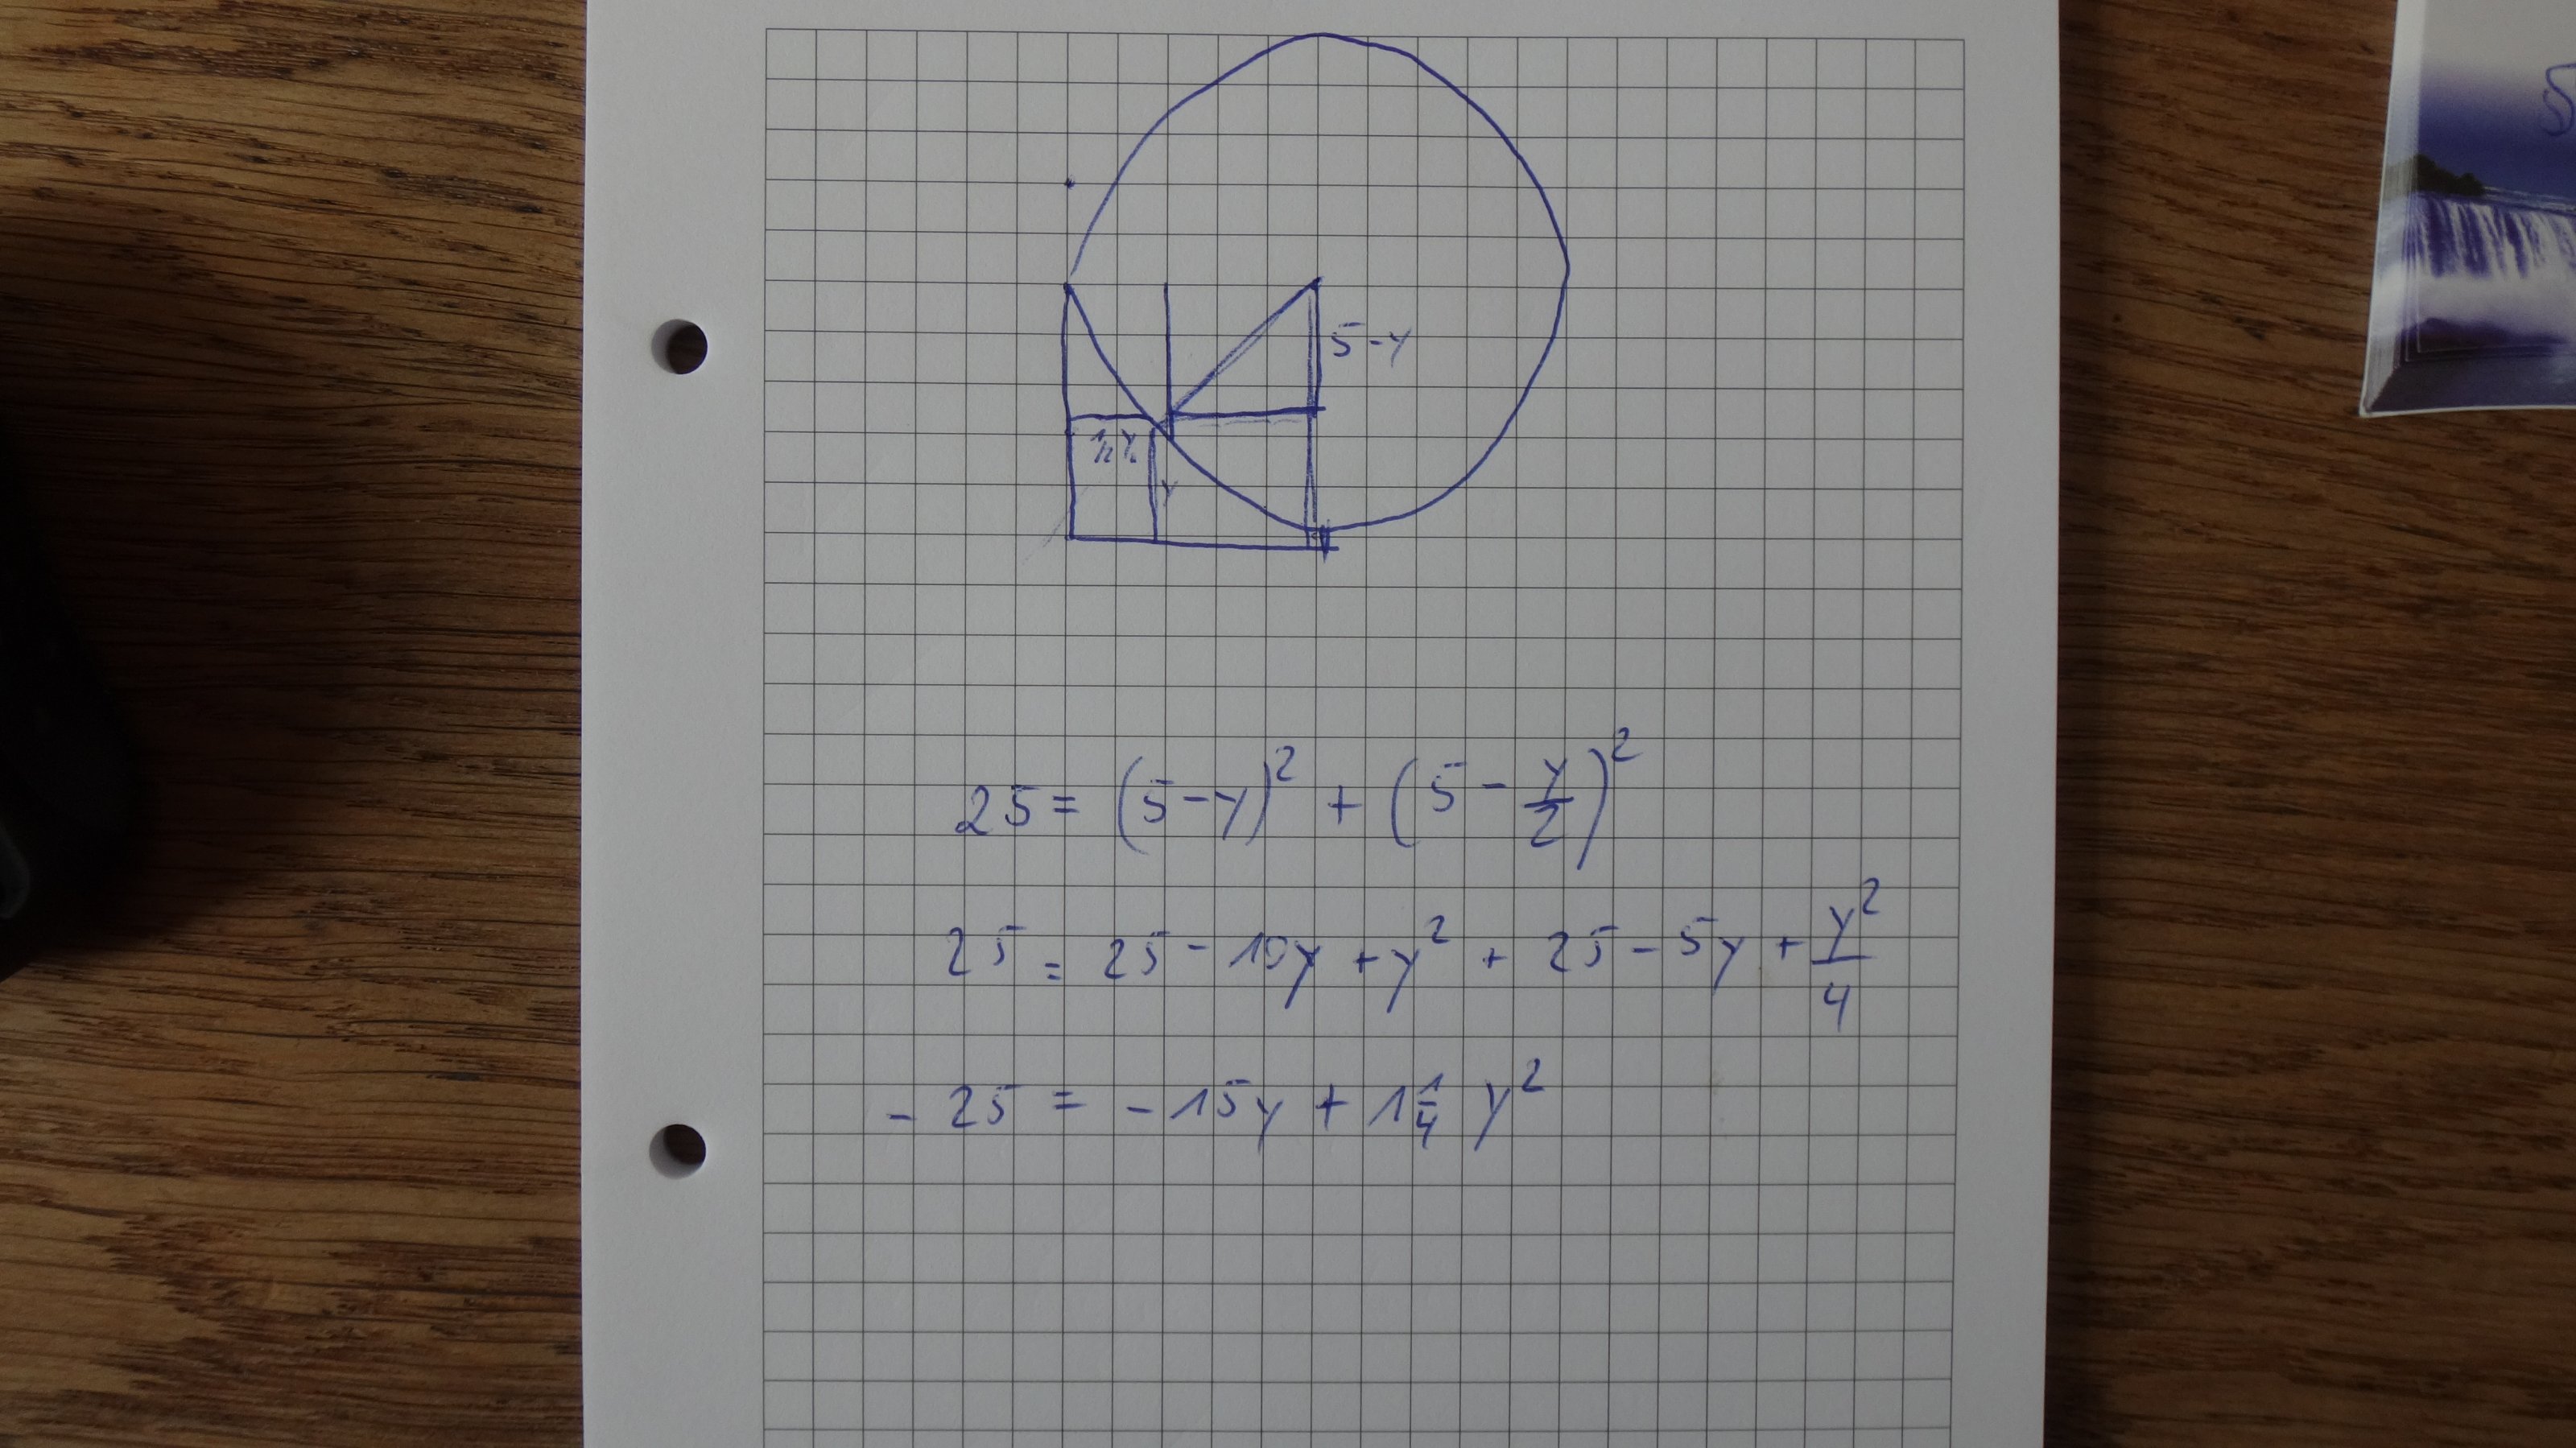 5-y
½ y
y
25 = (5-y)² + (5 - y/2)²
25 = 25 - 10y + y² + 25 - 5y + y²/4
- 25 = - 15y + 1 1/4 y²